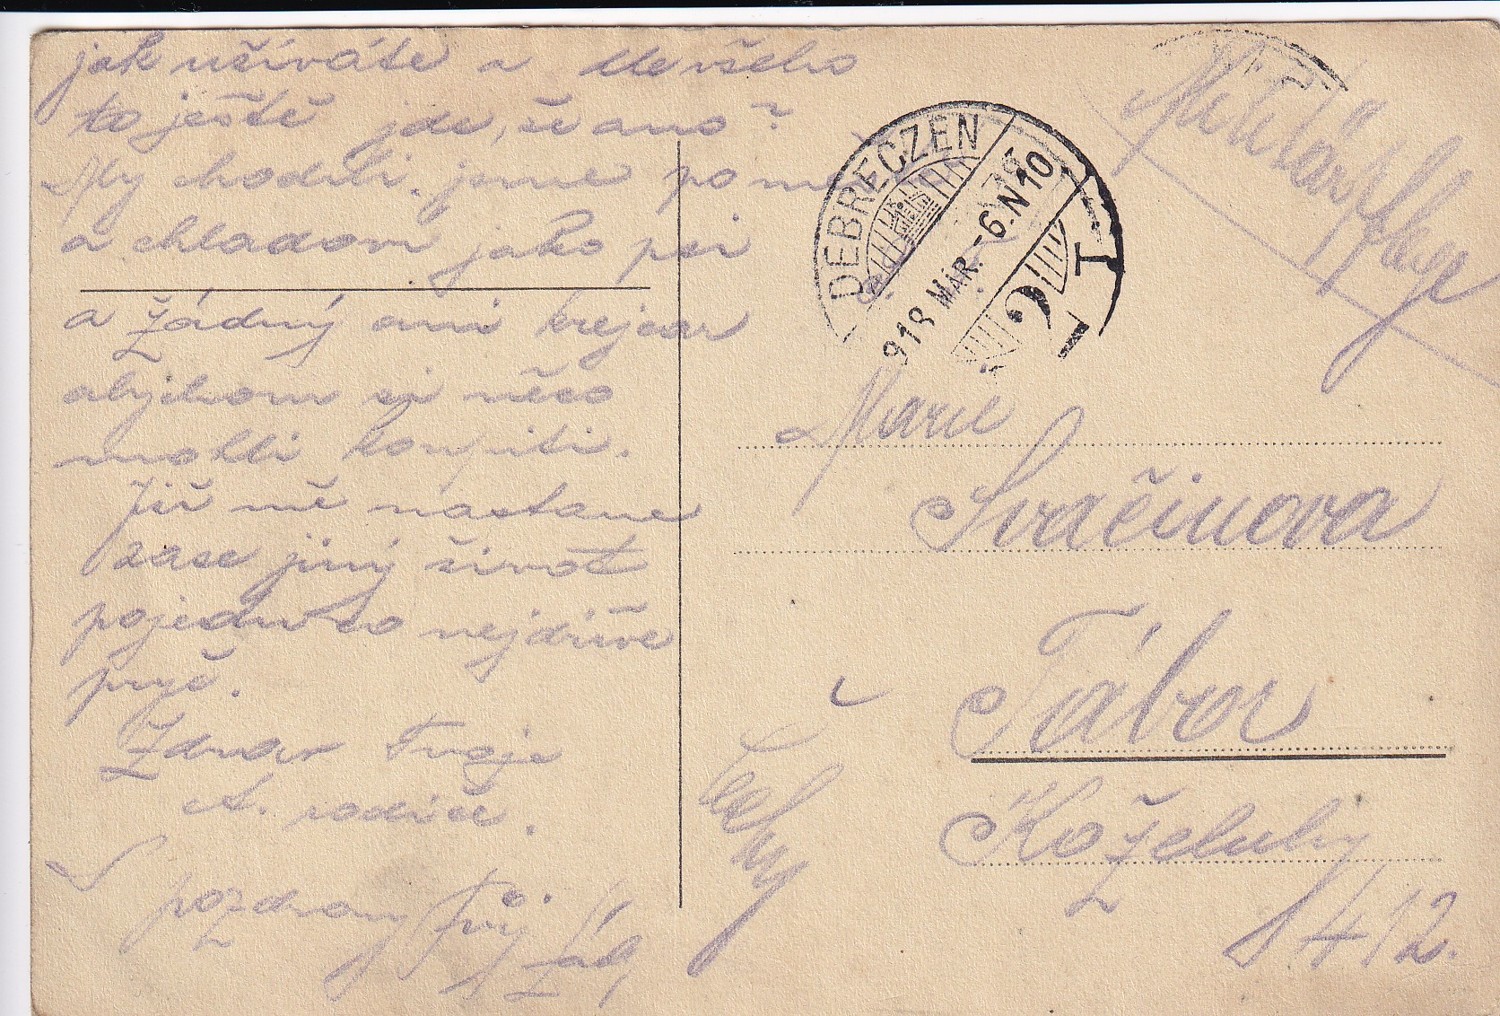 jak užíváte a dle všeho
to ještě jde, že ano?
My chodili jsme po
a chladom jako psi
a žádný ani krejcar
abychom si něco
mohli koupiti.
Již mě nastane
zase jiný život
pojedu co nejdříve
pryč.
Zdvar Tvoje
A. rodiče.
S pozdravy Tvůj
DEBRECZEN
918 MÁR. -6. N 10
2 I
Militärpflege
Marie
Svačinova
Tábor
Koželuhy
Čechy
412.